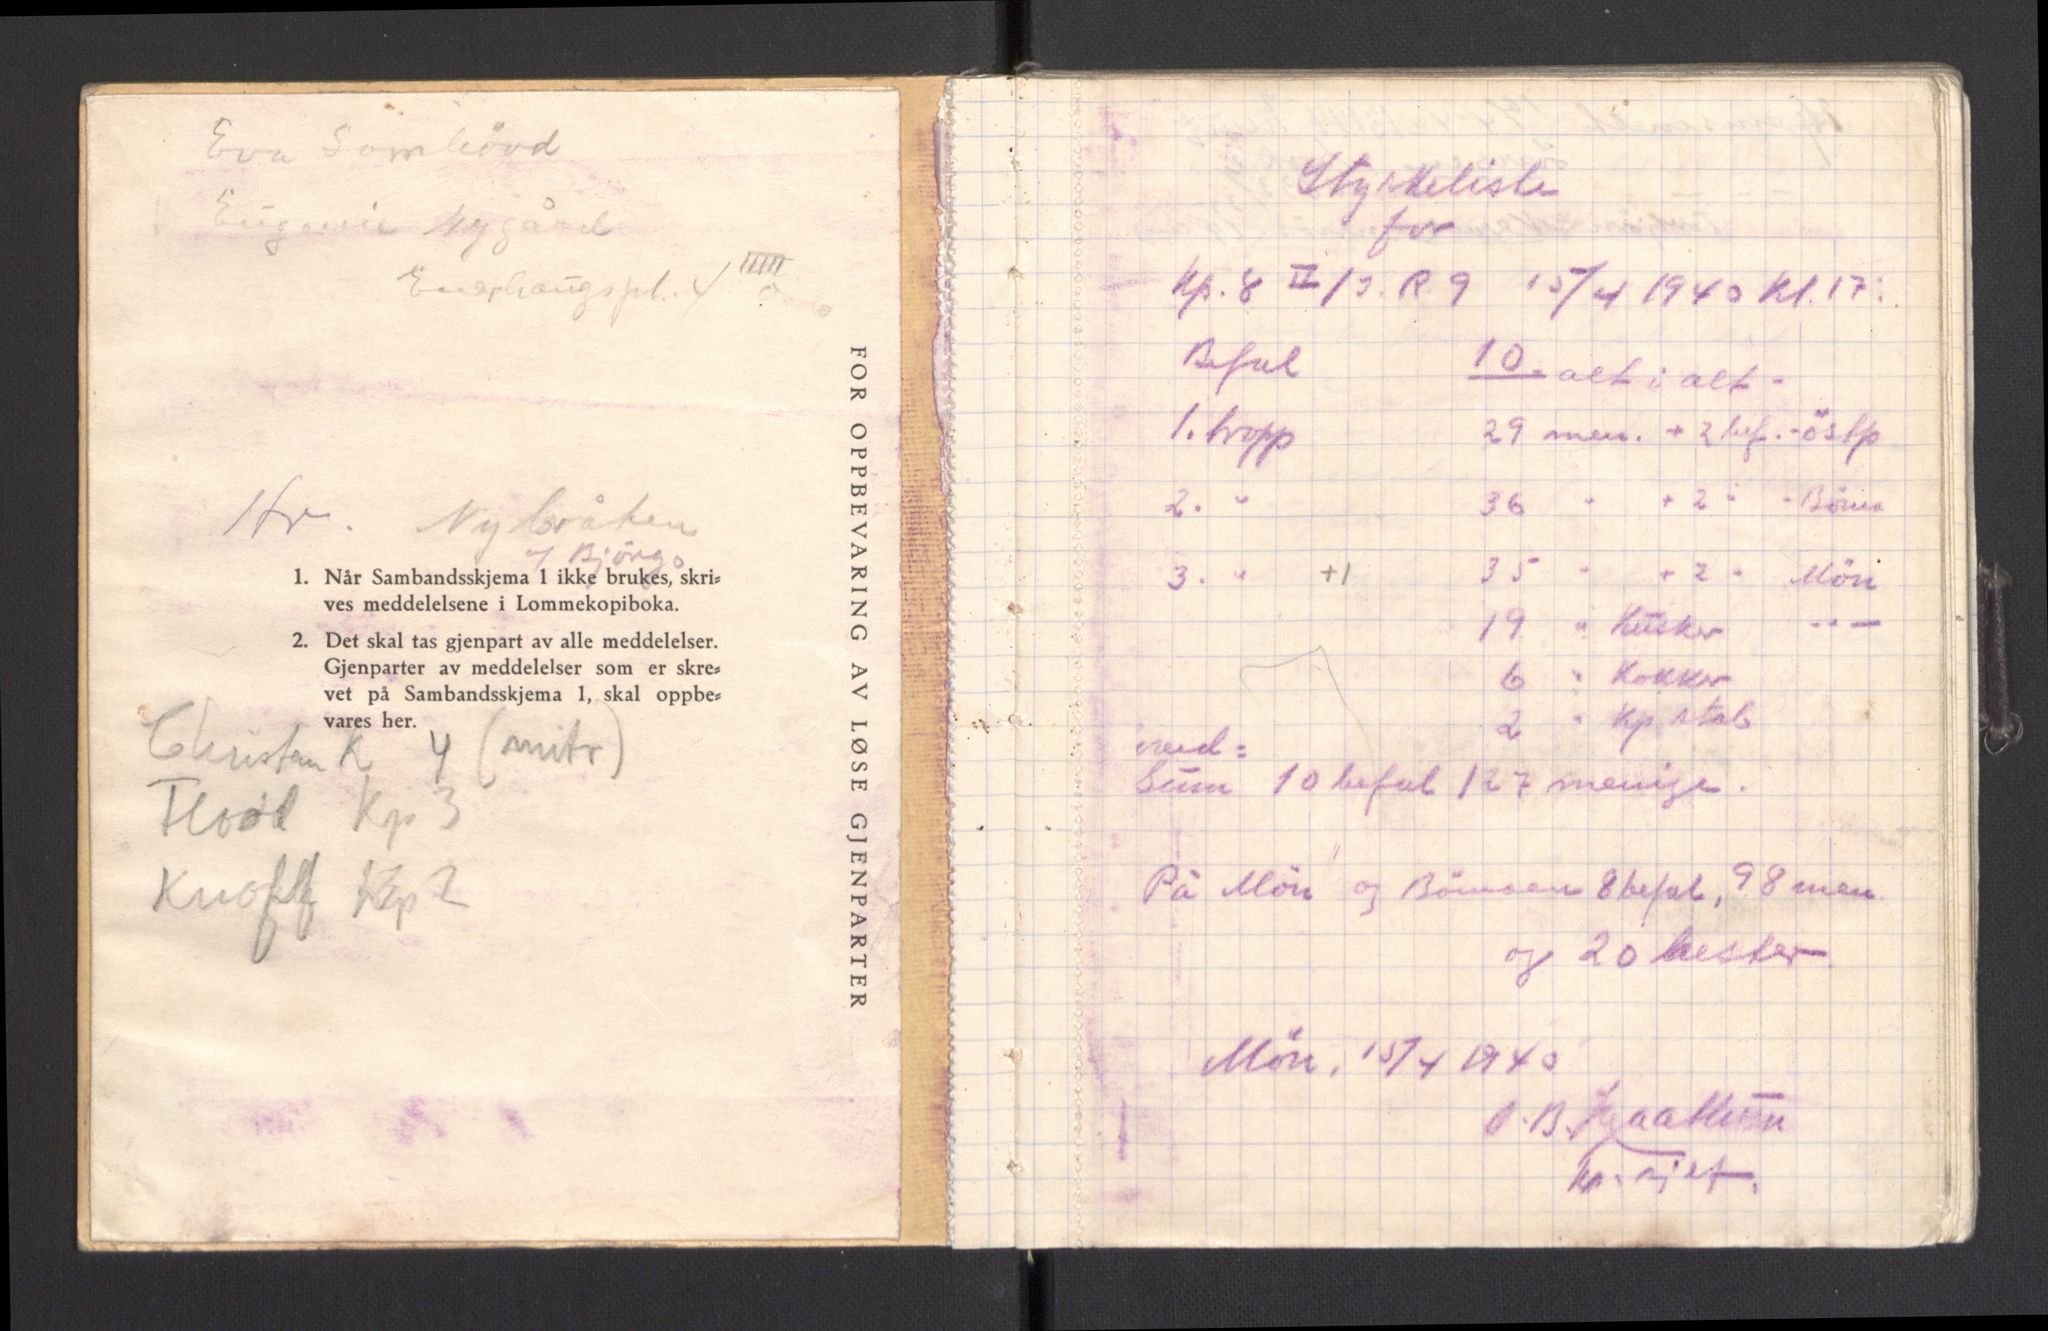 Eva Somhövd
Eugenie Nygård
Enerhaugspl. 4
Hr. Nybråten
og Bjørgo
1. Når Sambandsskjema 1 ikke brukes, skri=
ves meddelelsene i Lommekopiboka.
2. Det skal tas gjenpart av alle meddelelser.
Gjenparter av meddelelser som er skre=
vet på Sambandsskjema 1, skal oppbe=
vares her.
Christen K 4 (mitr)
Flood Kp 3
Knoff Kp 2
FOR OPPBEVARING AV LØSE GJENPARTER
Styrkeliste
for
Kp. 8 II/J. R 9 15/4 1940 Kl. 17:
Befal 10. alt i alt -
1. tropp 29 men. + 2 bef. - östp
2. " 36 " + 2 " - Bömo
3. " +1 35 " + 2 " Mön
19 " Kusker - - —
6 " Kokker
2 " Kp stab
Sum 10 befal 127 menige.
På Mön og Bömoen 8 befal, 98 men
og 20 hester
Mön, 15/4 1940
Kp. sjef.